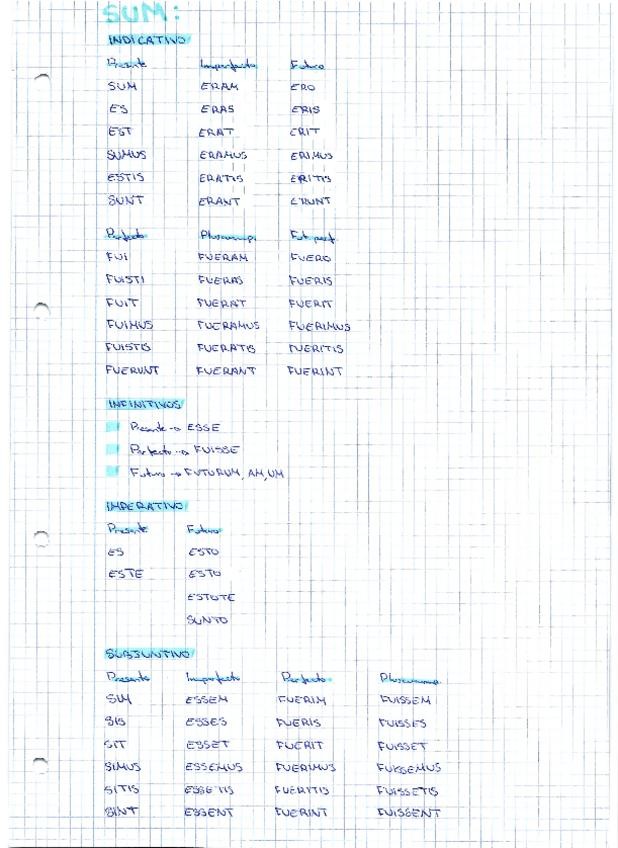 SUM:
INDICATIVO
Presente Imperfecto Futuro
SUM ERAM ERO
ES ERAS ERIS
EST ERAT ERIT
SUMUS ERAMUS ERIMUS
ESTIS ERATIS ERITIS
SUNT ERANT ERUNT
Perfecto Pluscuamp. Fut perf.
FUI FUERAM FUERO
FUISTI FUERAS FUERIS
FUIT FUERAT FUERIT
FUIMUS FUERAMUS FUERIMUS
FUISTIS FUERATIS FUERITIS
FUERUNT FUERANT FUERINT
INFINITIVOS
Presente → ESSE
Perfecto → FUISSE
Futuro → FUTURUM, AM, UM
IMPERATIVO
Presente Futuro
ES ESTO
ESTE ESTO
ESTOTE
SUNTO
SUBJUNTIVO
Presente Imperfecto Perfecto Pluscuamp.
SIM ESSEM FUERIM FUISSEM
SIS ESSES FUERIS FUISSES
SIT ESSET FUERIT FUISSET
SIMUS ESSEMUS FUERIMUS FUISSEMUS
SITIS ESSETIS FUERITIS FUISSETIS
SINT ESSENT FUERINT FUISSENT